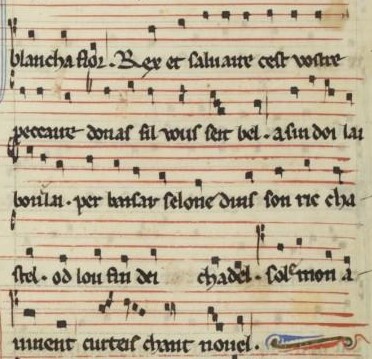 blancha flor. Rex et saluaire cest vostre
peccaire donas sil vous seit bel. a fin doi lai
bon lai. per baisar selonc dins son ric cha
stel. od lou fin dei chadel. sol mon a
nuient curteis chant nouel.